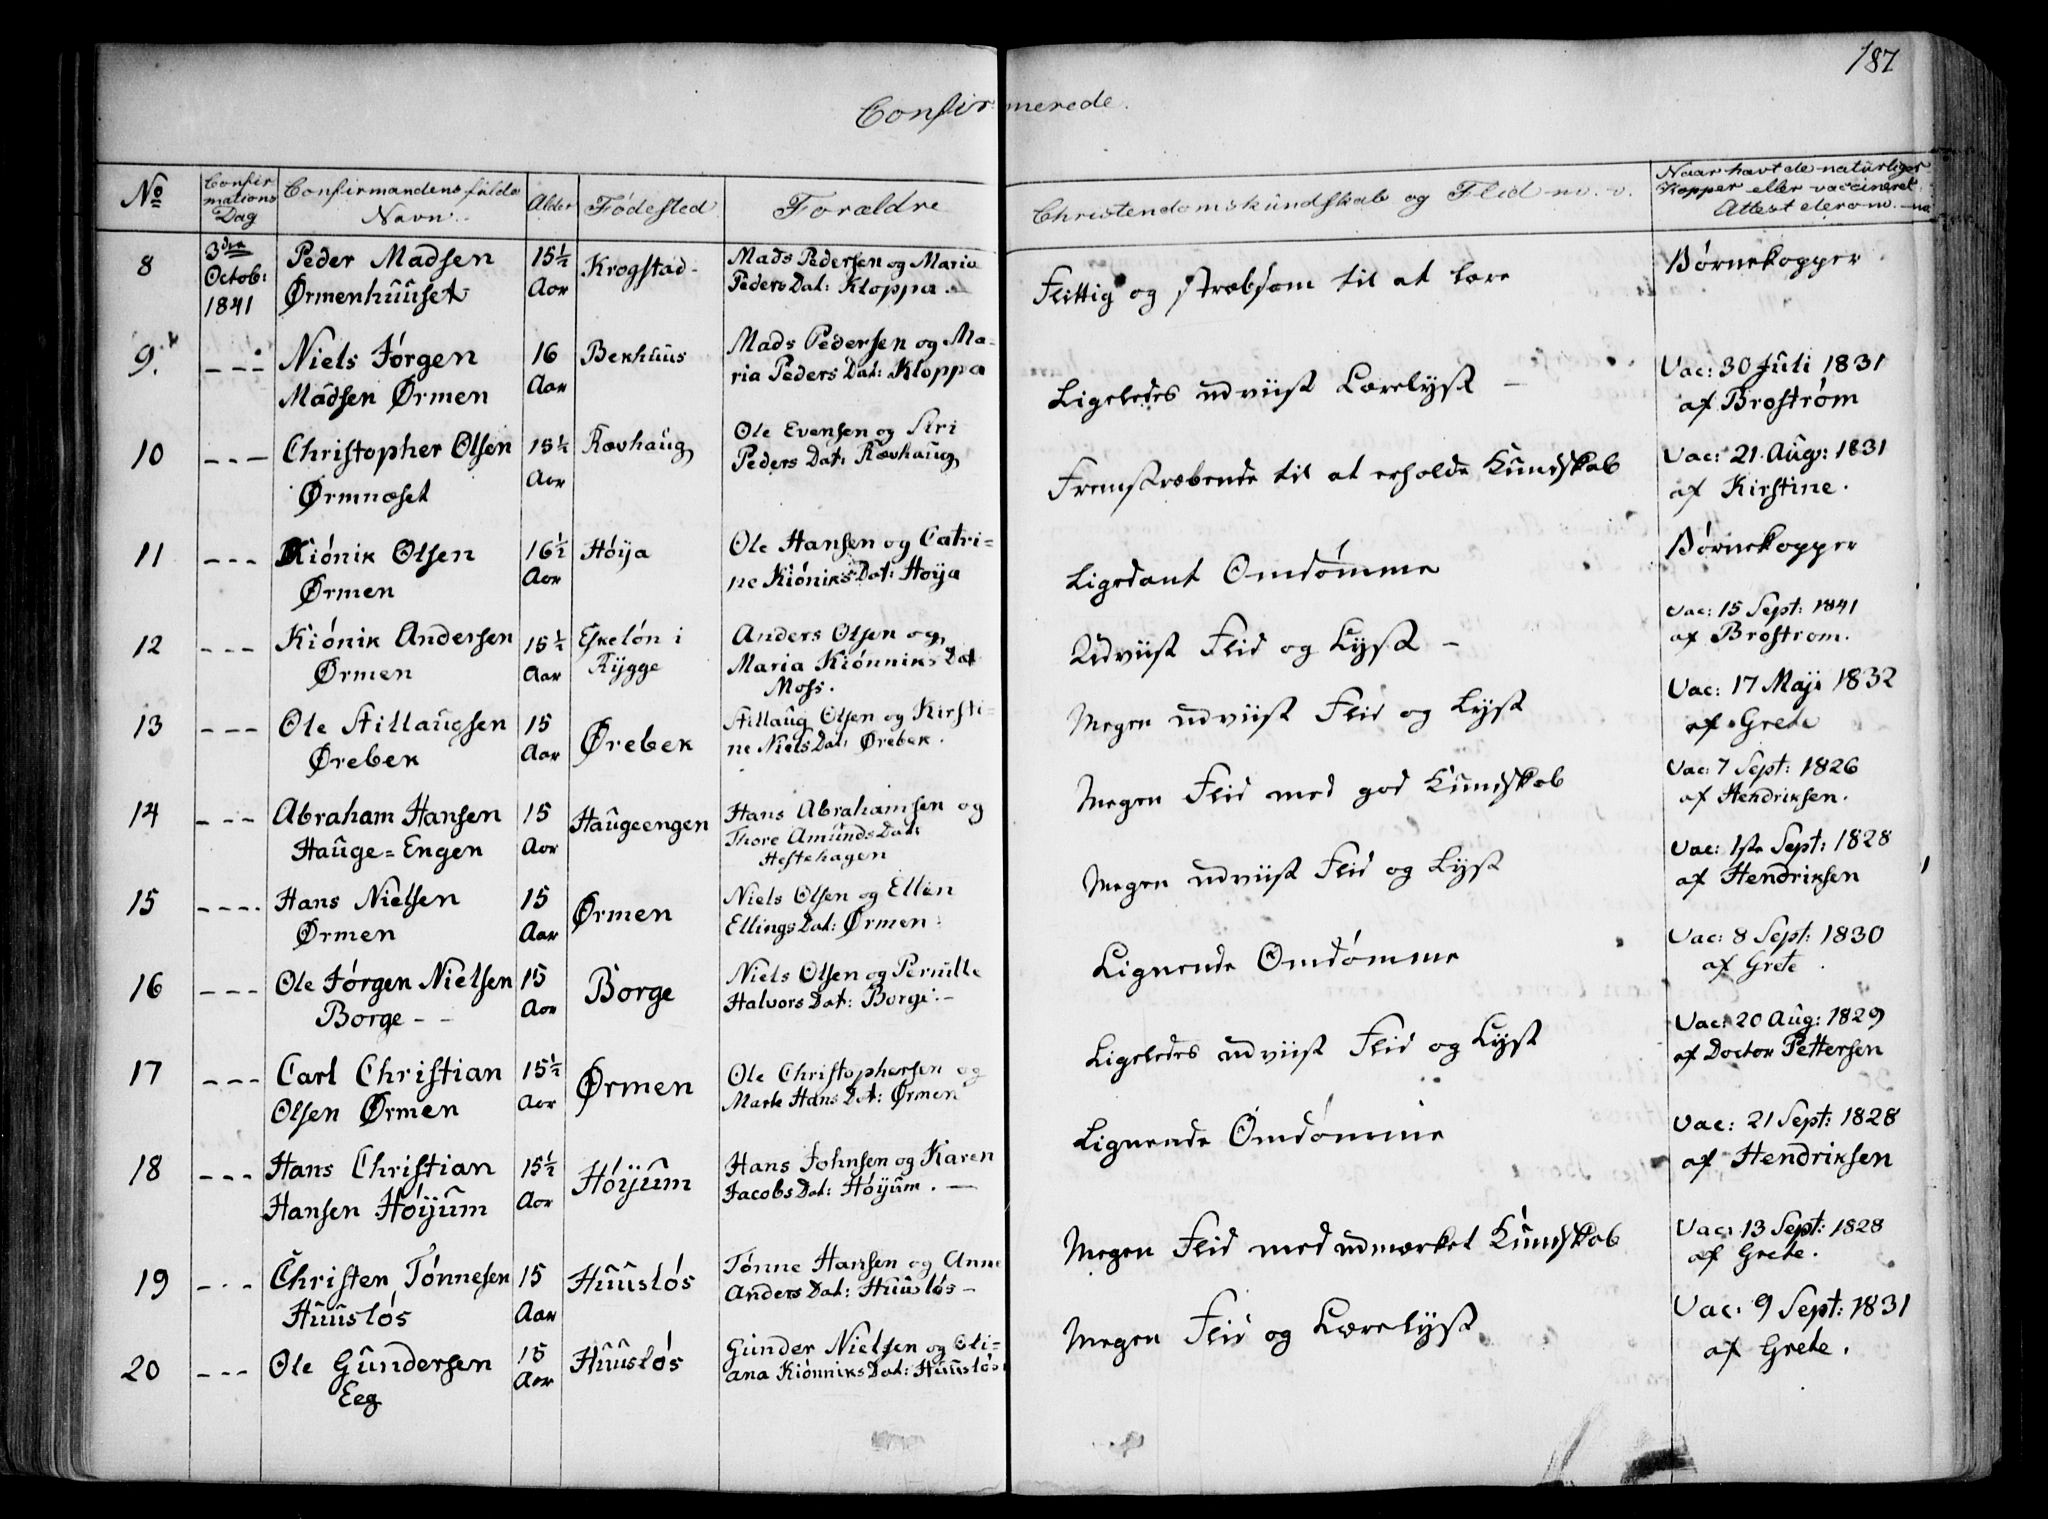 187
Confirmerede.
No
Confirmations Dag
Confirmandens fulde Navn
Alder
Fødested
Forældre
Christendomskundskab og Flid m. v.
Naar havt de naturlige Kopper eller vaccineret Attest derom
8
3die Octob: 1841
Peder Madsen Ørmenhuuset
15½ Aar
Krogstad
Mads Pedersen og Maria
Peders Dat: Kloppa
Flittig og stræbsom til at lære
Børnekopper
9.
Niels Jørgen
Madsen Ørmen
16 Aar
Bekhuus
Mads Pedersen og Ma-
ria Peders Dat: Kloppa
Ligeledes udviist Lærelyst
Vac: 30 Juli 1831
af Brostrøm
10
Christopher Olsen
Ørmnæset
15½ Aar
Rævhaug
Ole Evensen og Siri
Peders Dat: Rævhaug
Fremstræbende til at erholde Kundskab
Vac: 21 Aug: 1831
af Kirstine.
11
Kiónik Olsen
Ørmen
16½ Aar
Höija
Ole Hansen og Catri-
ne Kióniks Dat: Hoija
Ligedant Omdømme
Børnekopper
12
Kiónik Andersen
Ørmen
15½ Aar
Eskelón i
Rygge
Anders Olsen og
Maria Kiónniks Dat
Moss.
Udviist Flid og Lyst
Vac: 15 Sept: 1841
af Brostrom.
13
Ole Stillaugsen
Ørebek
15 Aar
Ørebek
Stillaug Olsen og Kirsti-
ne Niels Dat: Ørebek.
Megen udviist Flid og Lyst
Vac: 17 Maji 1832
af Grete
14
Abraham Hansen
Hauge=Engen
15 Aar
Haugeengen
Hans Abrahamsen og
Thore Amunds Dat:
Hestehagen
Megen Flid med god Kundskab
Vac: 7 Sept: 1826
af Hendriksen.
15
Hans Nielsen
Ørmen
15 Aar
Ørmen
Niels Olsen og Ellen
Ellings Dat: Ørmen
Megen udviist Flid og Lyst
Vac: 1ste Sept: 1828
af Hendriksen
16
Ole Jórgen Nielsen
Borge
15 Aar
Borge
Niels Olsen og Pernille
Halvors Dat: Borge
Lignende Omdømme
Vac: 8 Sept: 1830
af Grete
17
Carl Christian
Olsen Ørmen
15½ Aar
Ørmen
Ole Christophersen og
Marte Hans Dat: Ørmen
Ligeledes udviist Flid og Lyst
Vac: 20 Aug: 1829
af Doctor Pettersen
18
Hans Christian
Hansen Hóijum
15½ Aar
Hóijum
Hans Johnsen og Karen
Jacobs Dat: Hóijum.
Lignende Omdømme
Vac: 21 Sept: 1828
af Hendriksen
19
Christen Tónnesen
Huuslós
15 Aar
Huuslós
Tónne Hansen og Anne
Anders Dat: Huuslós
Megen Flid med udmærket Kundskab
Vac: 13 Sept: 1828
af Grete.
20
Ole Gundersen
Eeg
15 Aar
Huuslós
Gunder Nielsen og Oli-
ana Kiónniks Dat: Huuslós
Megen Flid og Lærelyst
Vac: 9 Sept: 1831
af Grete.